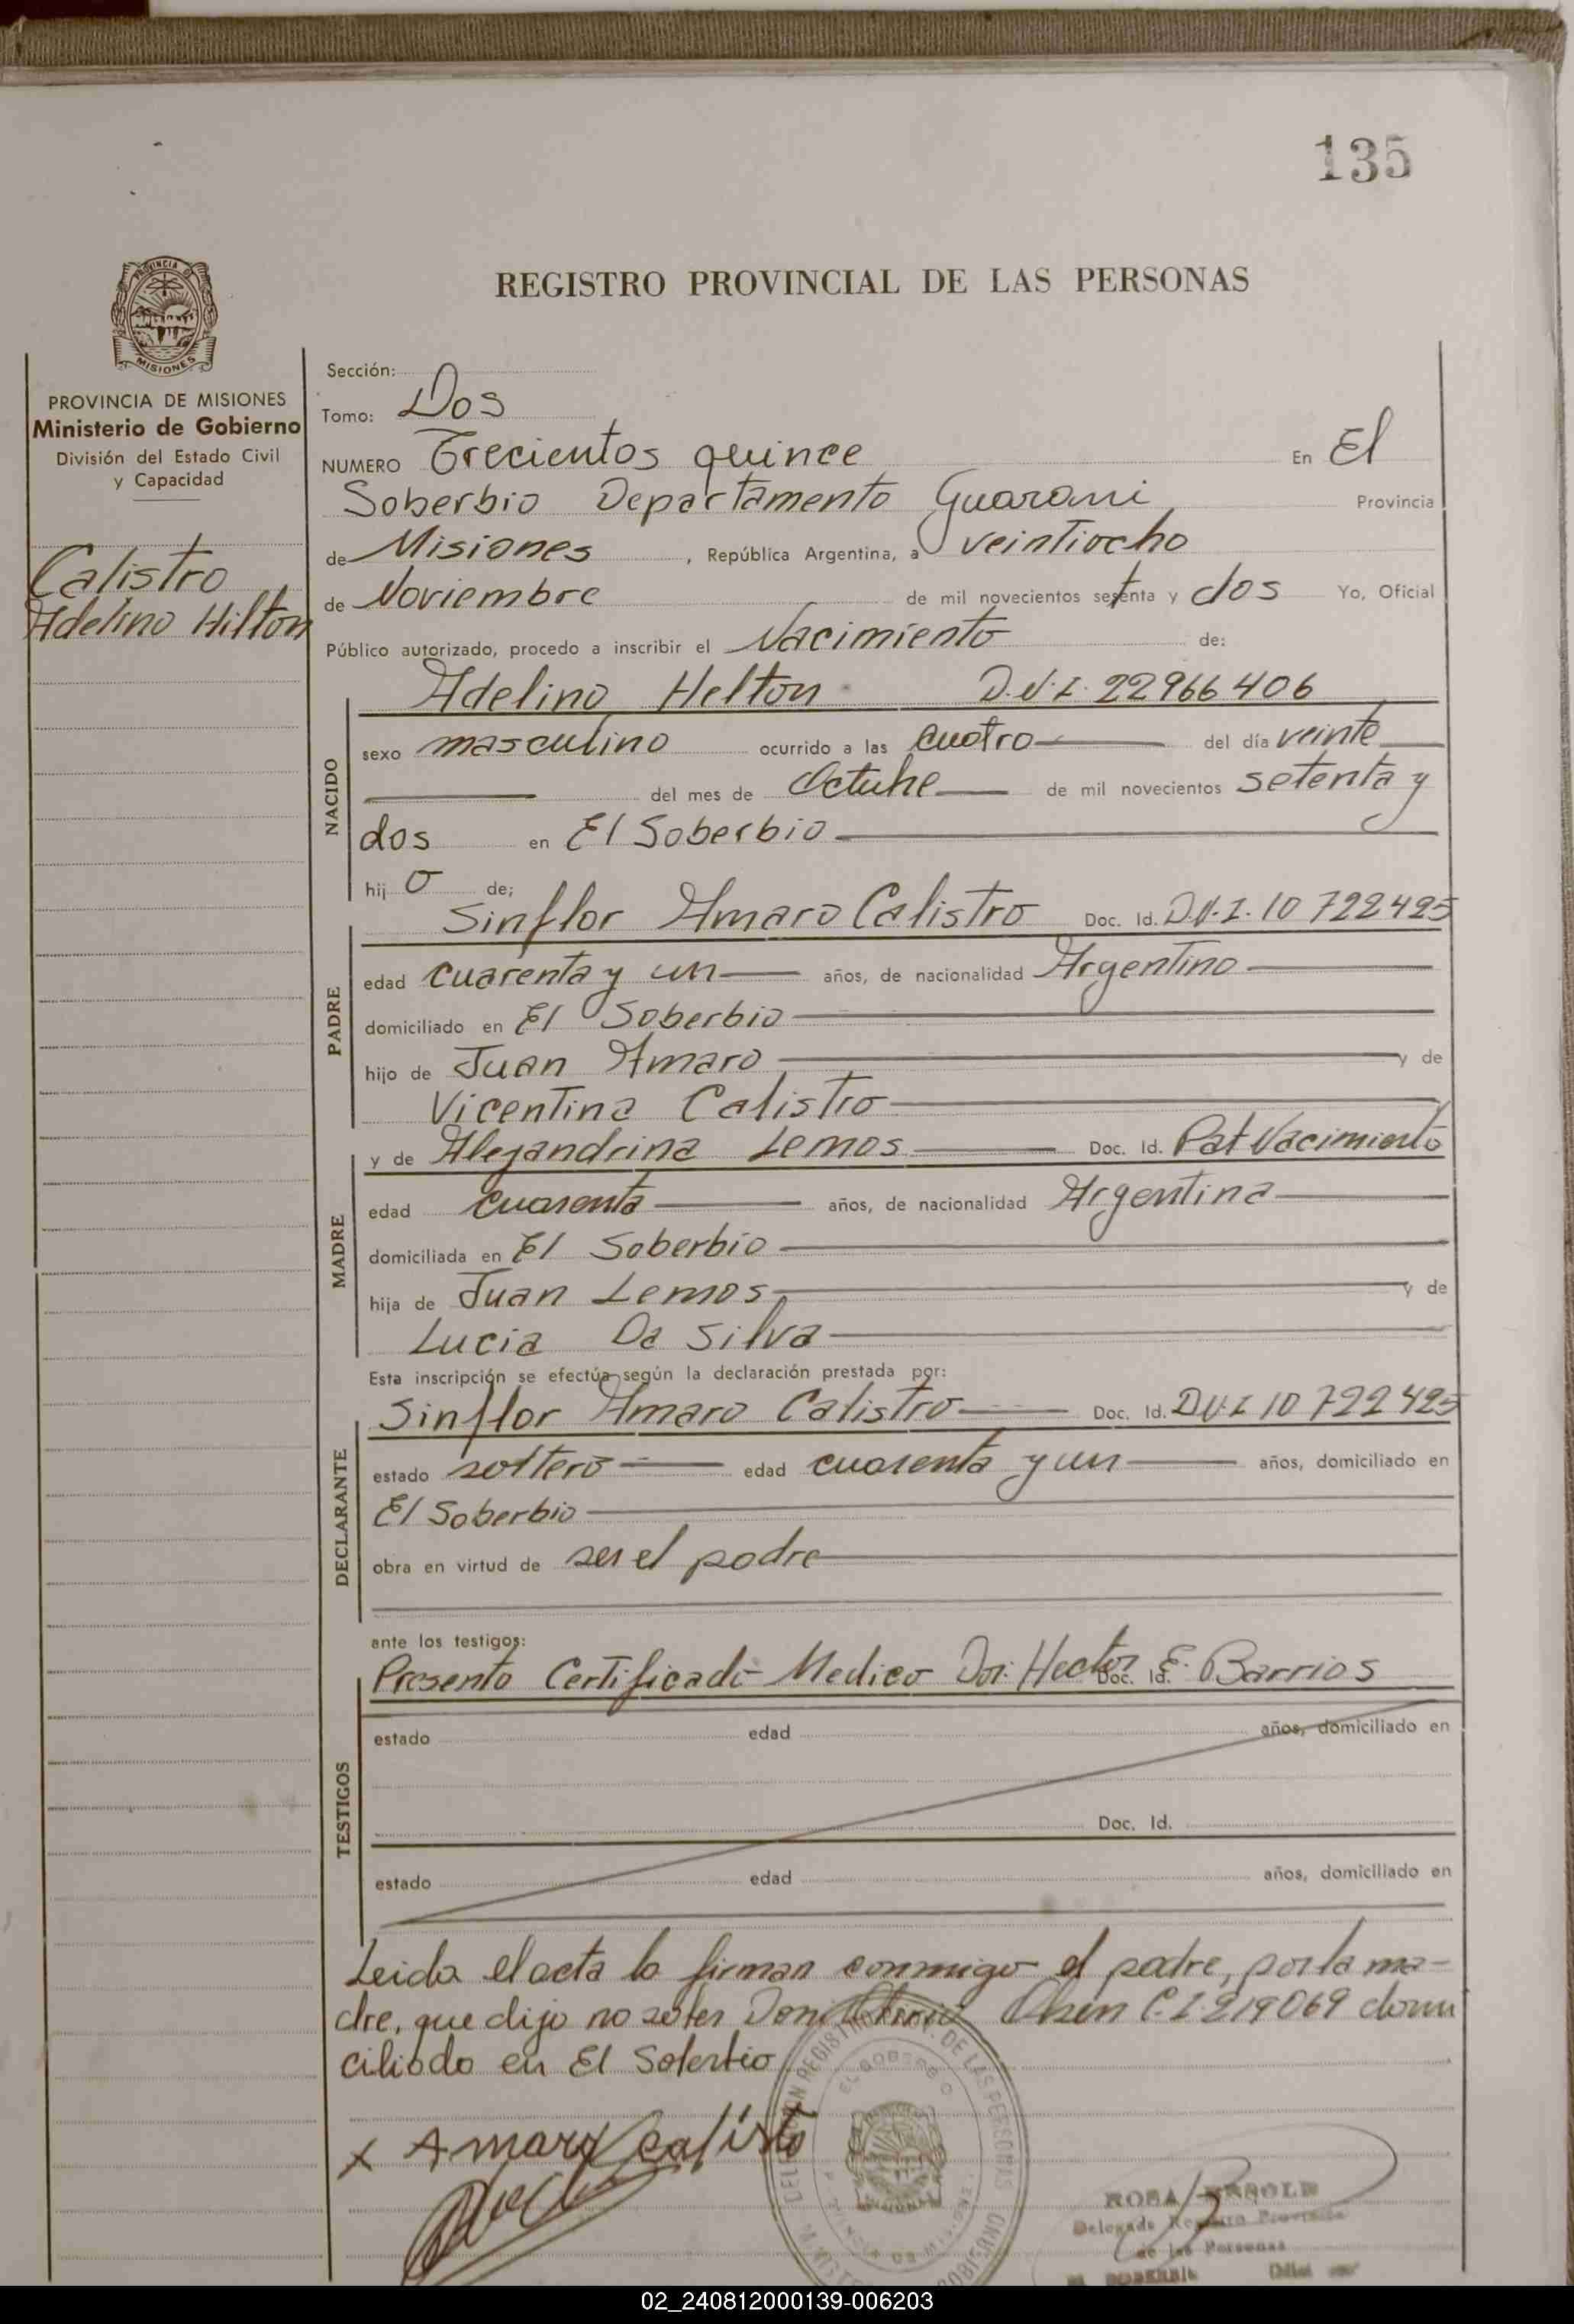 135
REGISTRO PROVINCIAL DE LAS PERSONAS
PROVINCIA DE
MISIONES
PROVINCIA DE MISIONES
Ministerio de Gobierno
División del Estado Civil
y Capacidad
Calistro
Adelino Hilton
Sección:
Tomo: Dos
NUMERO Trecientos quince En El
Soberbio Departamento Guarani Provincia
de Misiones , República Argentina, a veintiocho
de Noviembre de mil novecientos setenta y dos Yo, Oficial
Público autorizado, procedo a inscribir el Nacimiento de:
NACIDO
Adelino Helton D.N.I. 22966406
sexo masculino ocurrido a las cuatro del día veinte
del mes de Octubre de mil novecientos setenta y
dos en El Soberbio
hij o de;
PADRE
Sinflor Amaro Calistro Doc. Id. D.N.I. 10 722425
edad cuarenta y un años, de nacionalidad Argentino
domiciliado en El Soberbio
hijo de Juan Amaro y de
Vicentina Calistro
MADRE
y de Alejandrina Lemos Doc. Id. Part Nacimiento
edad cuarenta años, de nacionalidad Argentina
domiciliada en El Soberbio
hija de Juan Lemos y de
Lucia Da Silva
Esta inscripción se efectúa según la declaración prestada por:
DECLARANTE
Sinflor Amaro Calistro Doc. Id. D.N.I 10 722425
estado soltero edad cuarenta y un años, domiciliado en
El Soberbio
obra en virtud de ser el padre
ante los testigos:
TESTIGOS
Presento Certificado Medico Dor. Hector E. Barrios Doc. Id.
estado edad años, domiciliado en
Doc. Id.
estado edad años, domiciliado en
Leida el acta la firman conmigo el padre, por la ma-
dre, que dijo no saber Don C.I. 219069 domi
ciliado en El Soberbio
x Amaro Calisto
DE LAS PERSONAS
EL SOBERBIO
ROSA
Delegada Registro Provincial
de las Personas
02_240812000139-006203